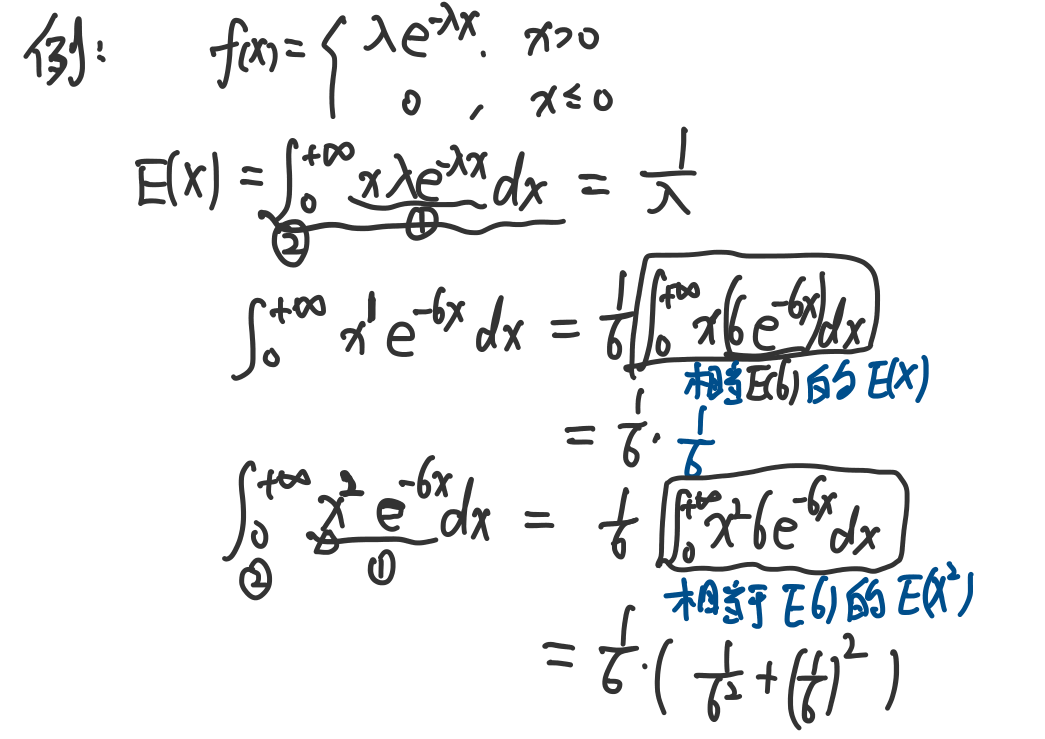 例: f(x) = { λe^{-λx}, x>0
0, x≤0
E(X) = ∫_0^{+∞} xλe^{-λx} dx = 1/λ
② ①
∫_0^{+∞} x^1 e^{-6x} dx = 1/6 ∫_0^{+∞} x(6e^{-6x})dx
相当E(6)的E(X)
= 1/6 · 1/6
∫_0^{+∞} x^2 e^{-6x} dx = 1/6 ∫_0^{+∞} x^2 6e^{-6x} dx
② ①
相当于E(6)的E(X^2)
= 1/6 · ( 1/6^2 + (1/6)^2 )